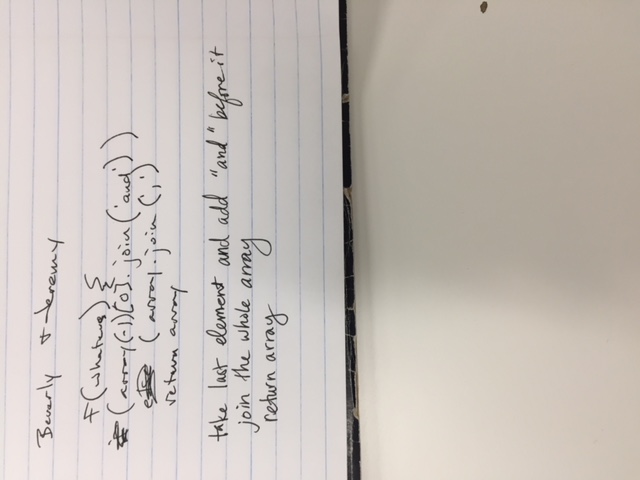 Beverly + Jeremy
F(whatevs) {
(array(-1)[0].join('and'))
(array.join(',')
return array
take last element and add "and" before it
join the whole array
return array